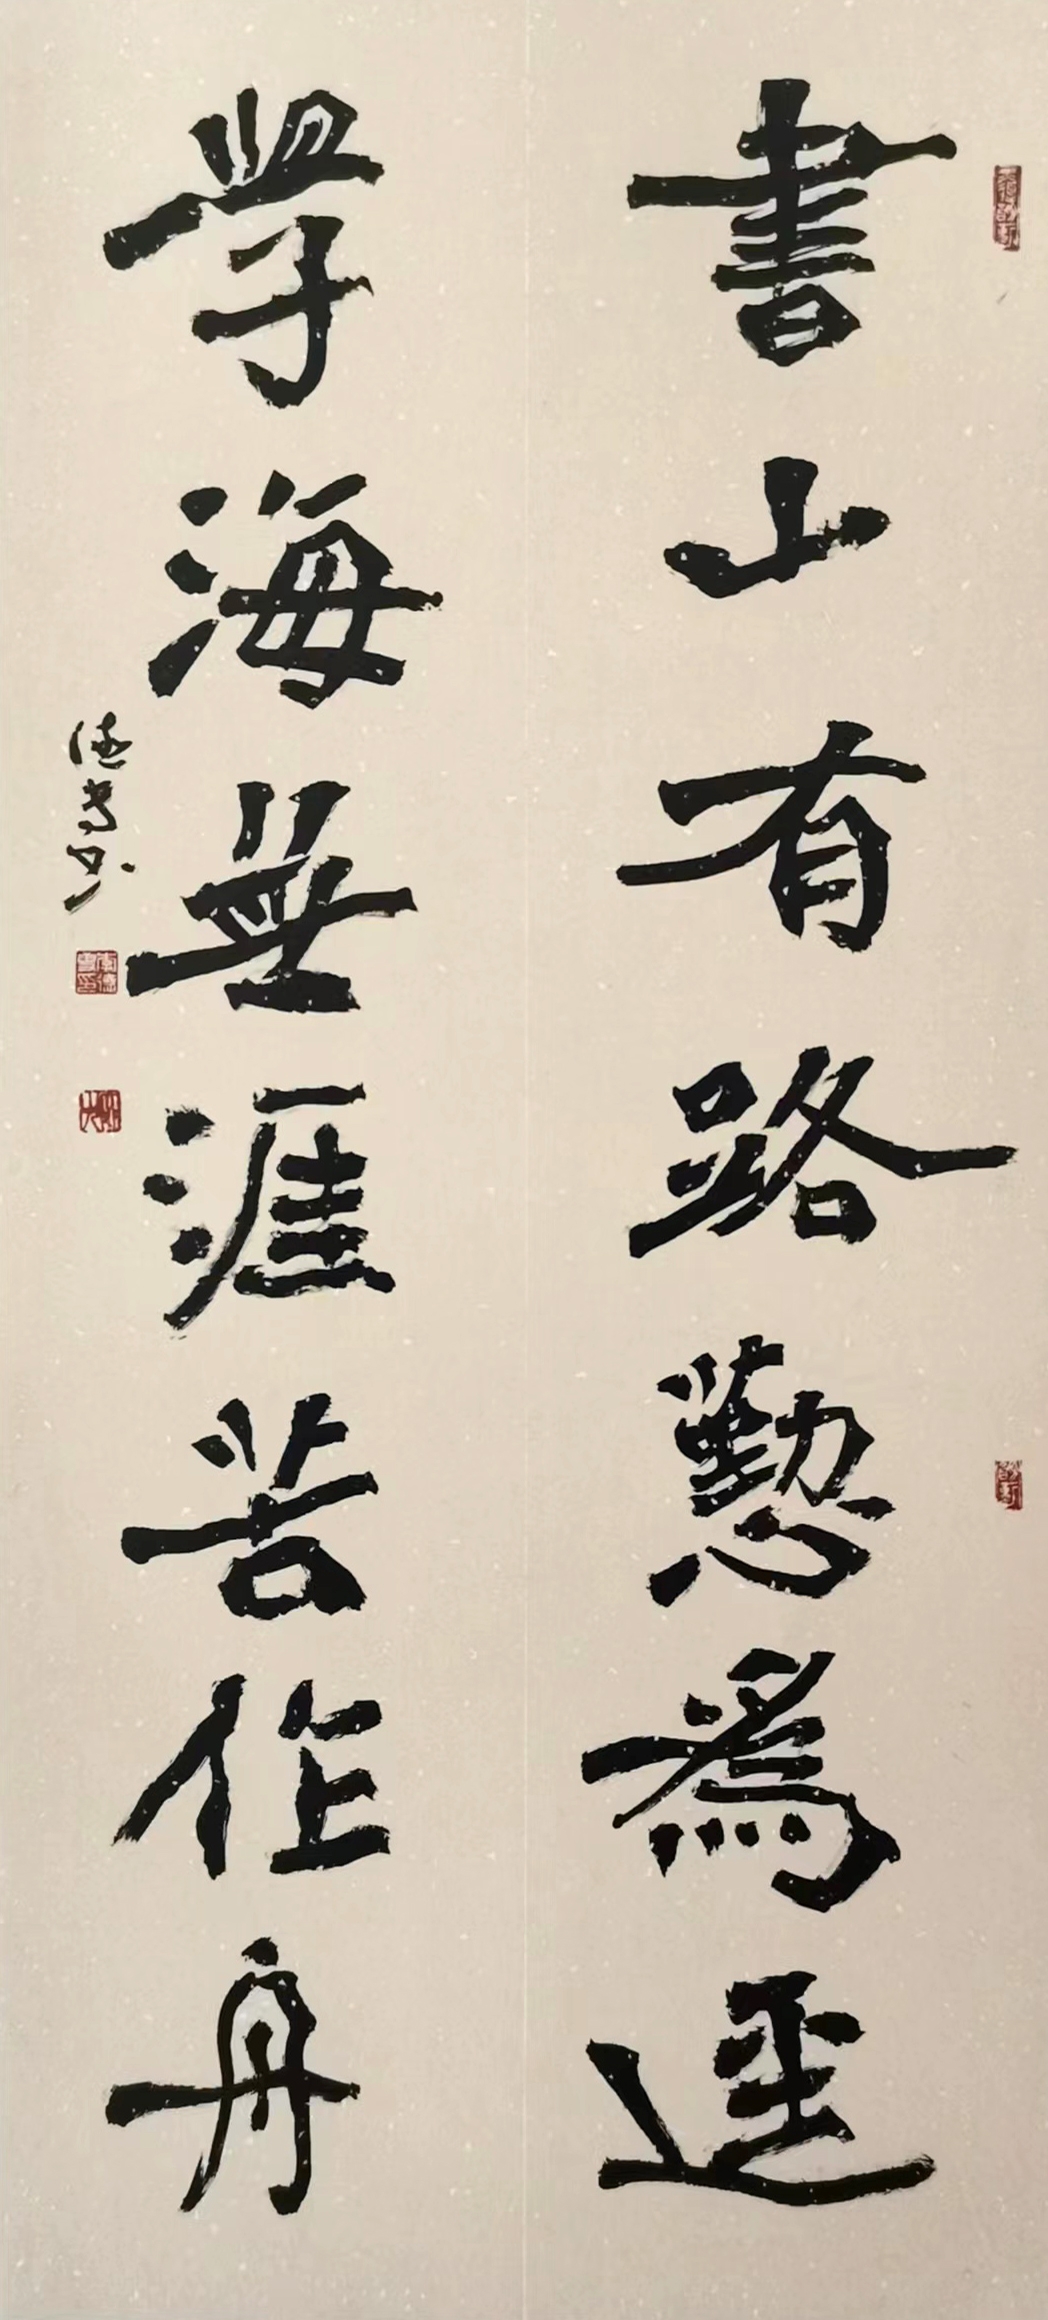 書山有路懃為逕
學海無涯苦作舟